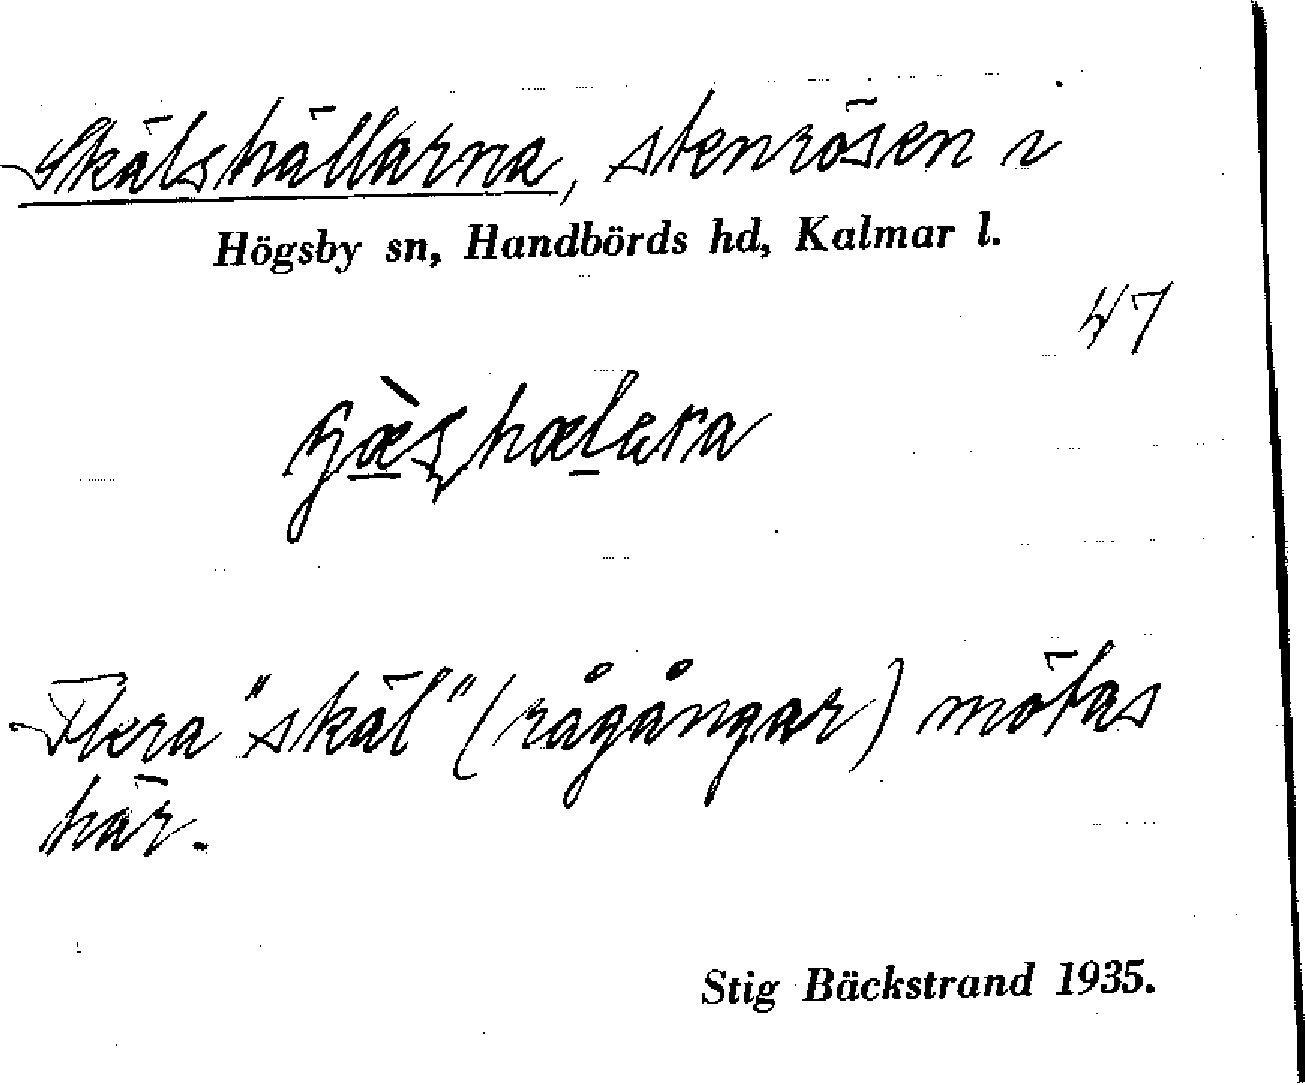 Skälshällarna, stenrösen i
Högsby sn, Handbörds hd, Kalmar l.
47
Flera "skäl" (rågångar) mötas
här.
Stig Bäckstrand 1935.